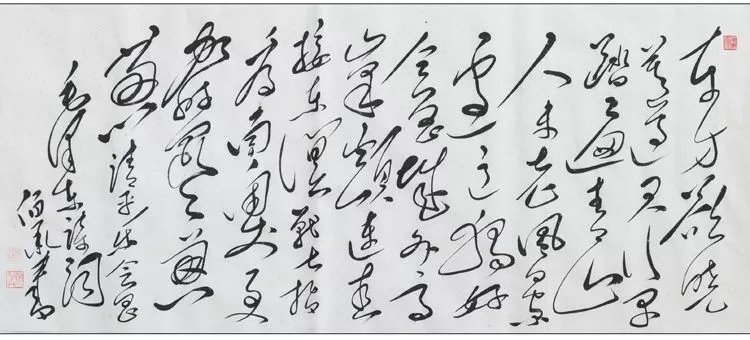 东方欲晓
莫道君行早
踏遍青山
人未老风景
这边独好
会昌城外高
峰颠连直
接东溟战士指
看南粤更
加郁郁葱
葱 清平乐会昌
毛泽东诗词